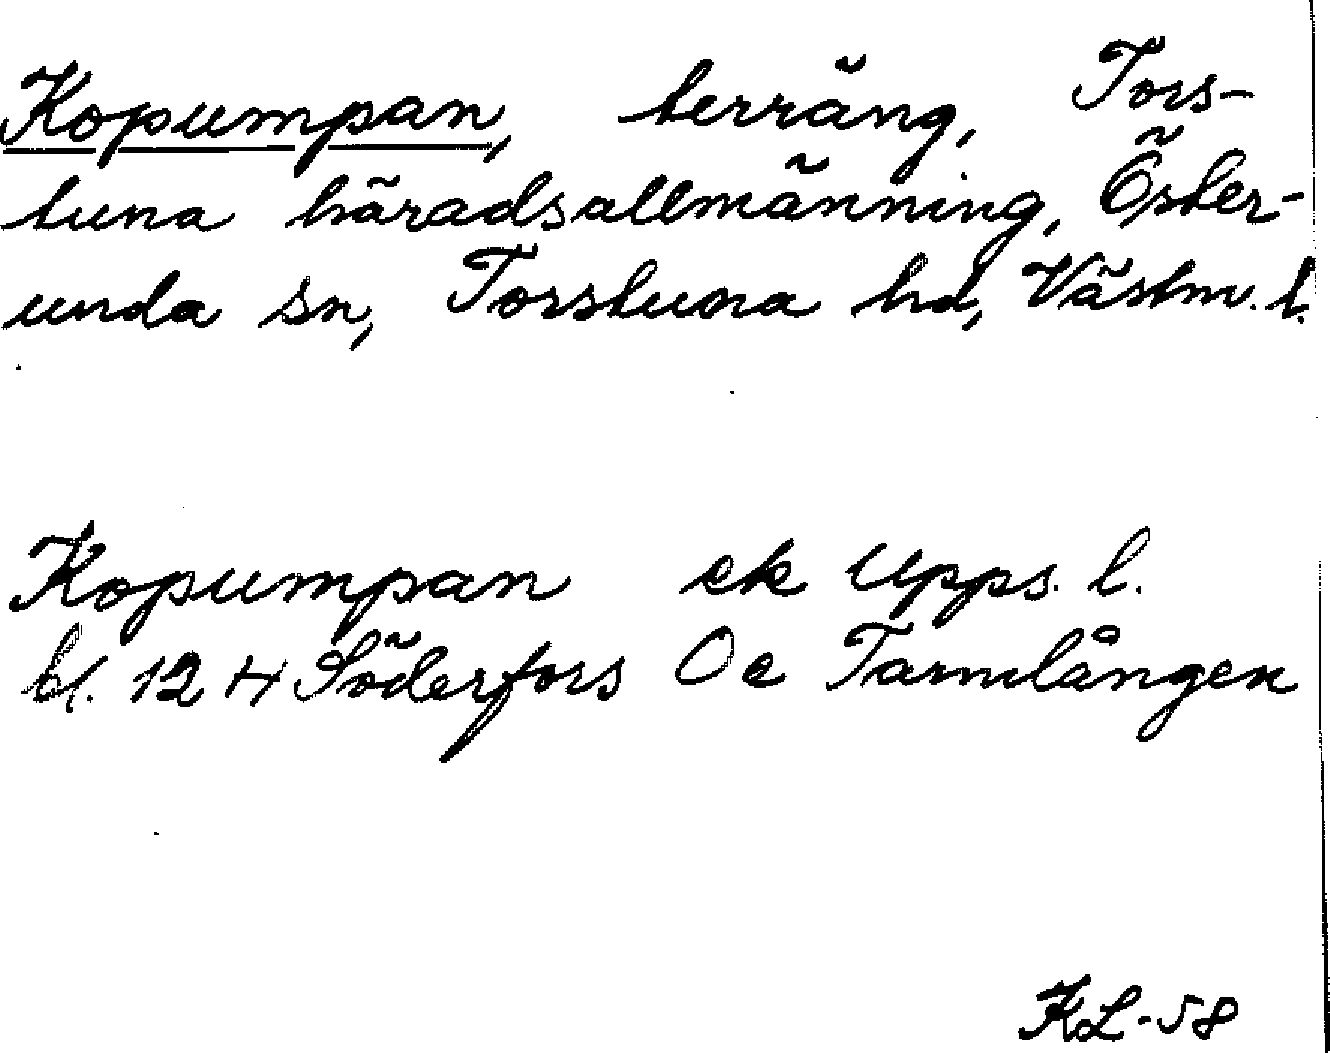 Kopumpan, terräng, Tors-
tuna häradsallmänning, Öster-
unda sn, Torstuna hd, Västm. l.
Kopumpan ek Upps. l.
bl. 124 Söderfors Oe Tarmlången
KL-58